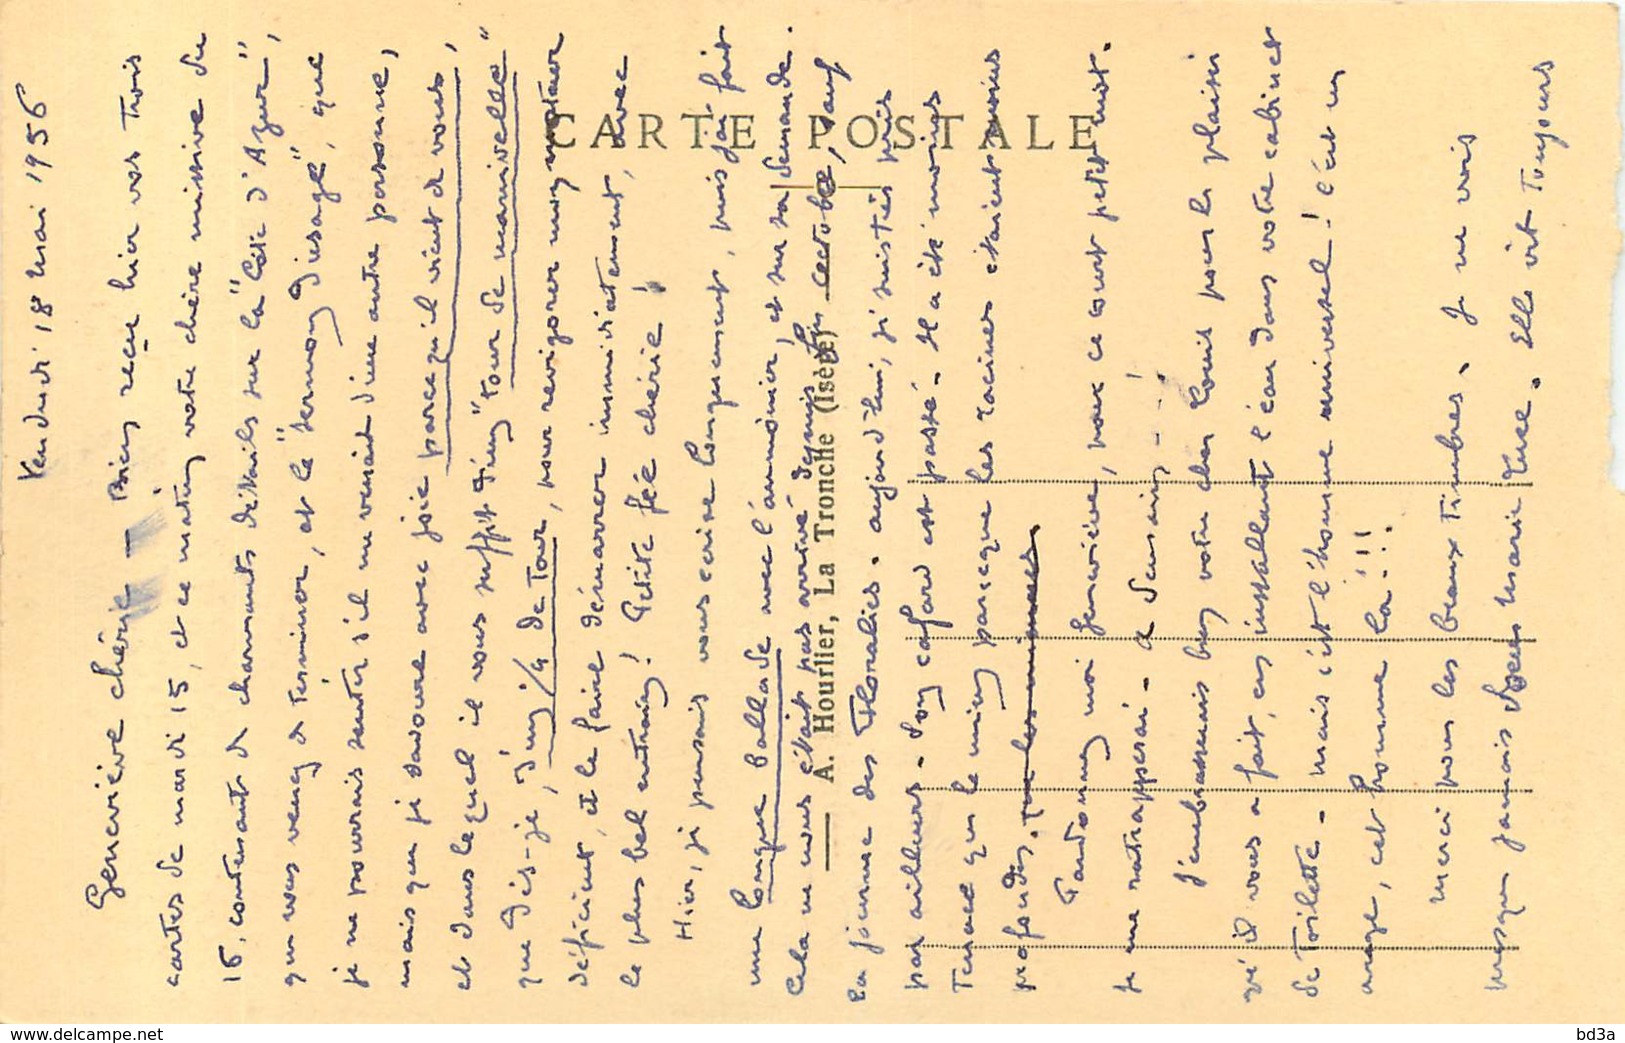 Vendredi 18 mai 1956
Geneviève chérie — Bien reçu hier vos trois
cartes de mardi 15, et ce matin votre chère missive du
16, contenant de charmants détails sur la "Côte d'Azur",
que vous venez de terminer, et le "sermon d'usage", que
je ne pourrais s'il me venait d'une autre personne,
mais que je savoure avec joie parce qu'il vient de vous,
et dans lequel il vous suffit d'un "tour de manivelle"
que dis-je, d'un 1/4 de tour, pour revigorer mon moteur
déficient, et le faire démarrer immédiatement, avec
le plus bel entrain! Petite fée chérie!
Hier, je pensais vous écrire longuement, puis j'ai fait
une longue ballade avec l'aumônier, et sur sa demande.
Cela ne nous était pas arrivé depuis fin octobre, sauf
la journée des Floralies. aujourd'hui, je suis très pris
par ailleurs. Son cafard est passé. Il a été moins
Tenace que le mien parce que les racines étaient moins
profondes.
Pardonnez moi Geneviève, pour ce court petit mot.
je me rattrapperai — a demain — !
J'embrasserais bien votre cher Louis pour le plaisir
qu'il vous a fait, en installant l'eau dans votre cabinet
de Toilette. mais c'est l'homme universel! c'est un
ange, cet homme là!!!.
merci pour les beaux timbres. Je ne vois
presque jamais Soeur Marie Luce. Elle vit toujours
CARTE POSTALE
A. Hourlier, La Tronche (Isère)
www.delcampe.net
bd3a